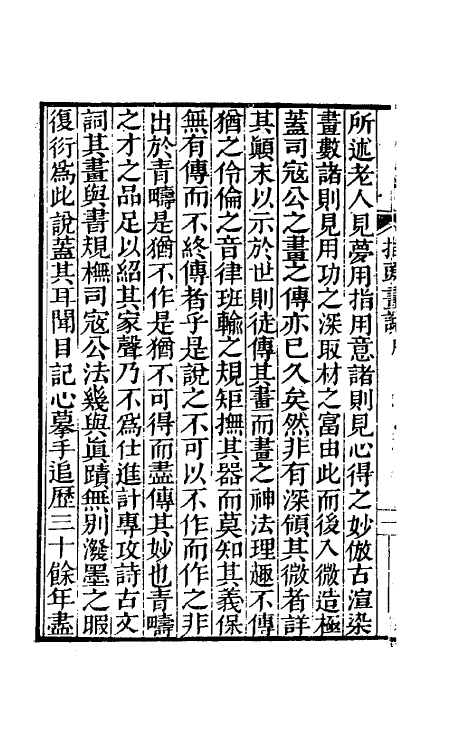 所述老人見夢用指用意諸則見心得之妙倣古渲染
畫數諸則見用功之深取材之富由此而後入微造極
蓋司寇公之畫之傳亦已久矣然非有深領其微者詳
其顚末以示於世則徒傳其畫而畫之神法理趣不傳
猶之伶倫之音律班輸之規矩撫其器而莫知其義保
無有傳而不終傳者乎是說之不可以不作而作之非
出於靑疇是猶不作是猶不可得而盡傳其妙也靑疇
之才之品足以紹其家聲乃不爲仕進計專攻詩古文
詞其畫與書規橅司寇公法幾與眞蹟無別潑墨之暇
復衍爲此說蓋其耳聞目記心摹手追歷三十餘年盡
指頭畫說